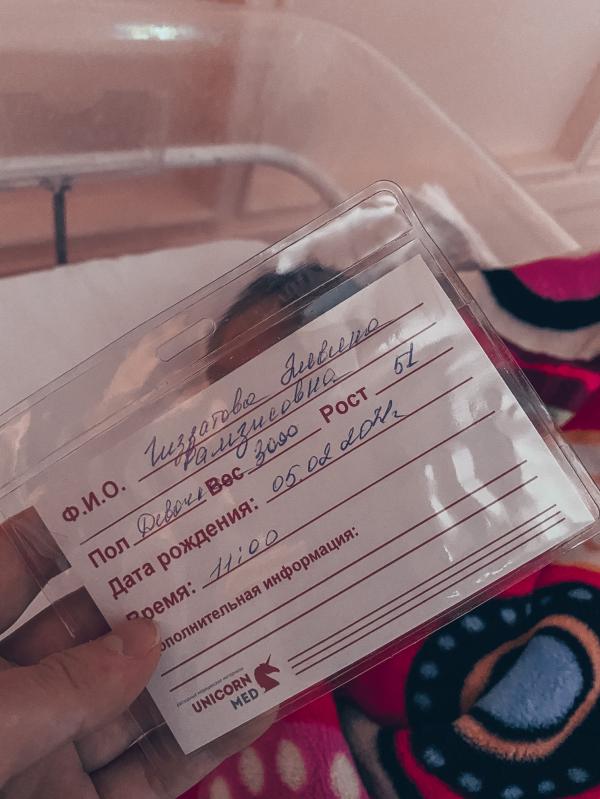 Ф.И.О. Гиззатова Эльвина
Рамзисовна
Пол Девочка Вес 3000 Рост 51
Дата рождения: 05.02.2021г
Время: 11:00
Дополнительная информация:
UNICORN
MED